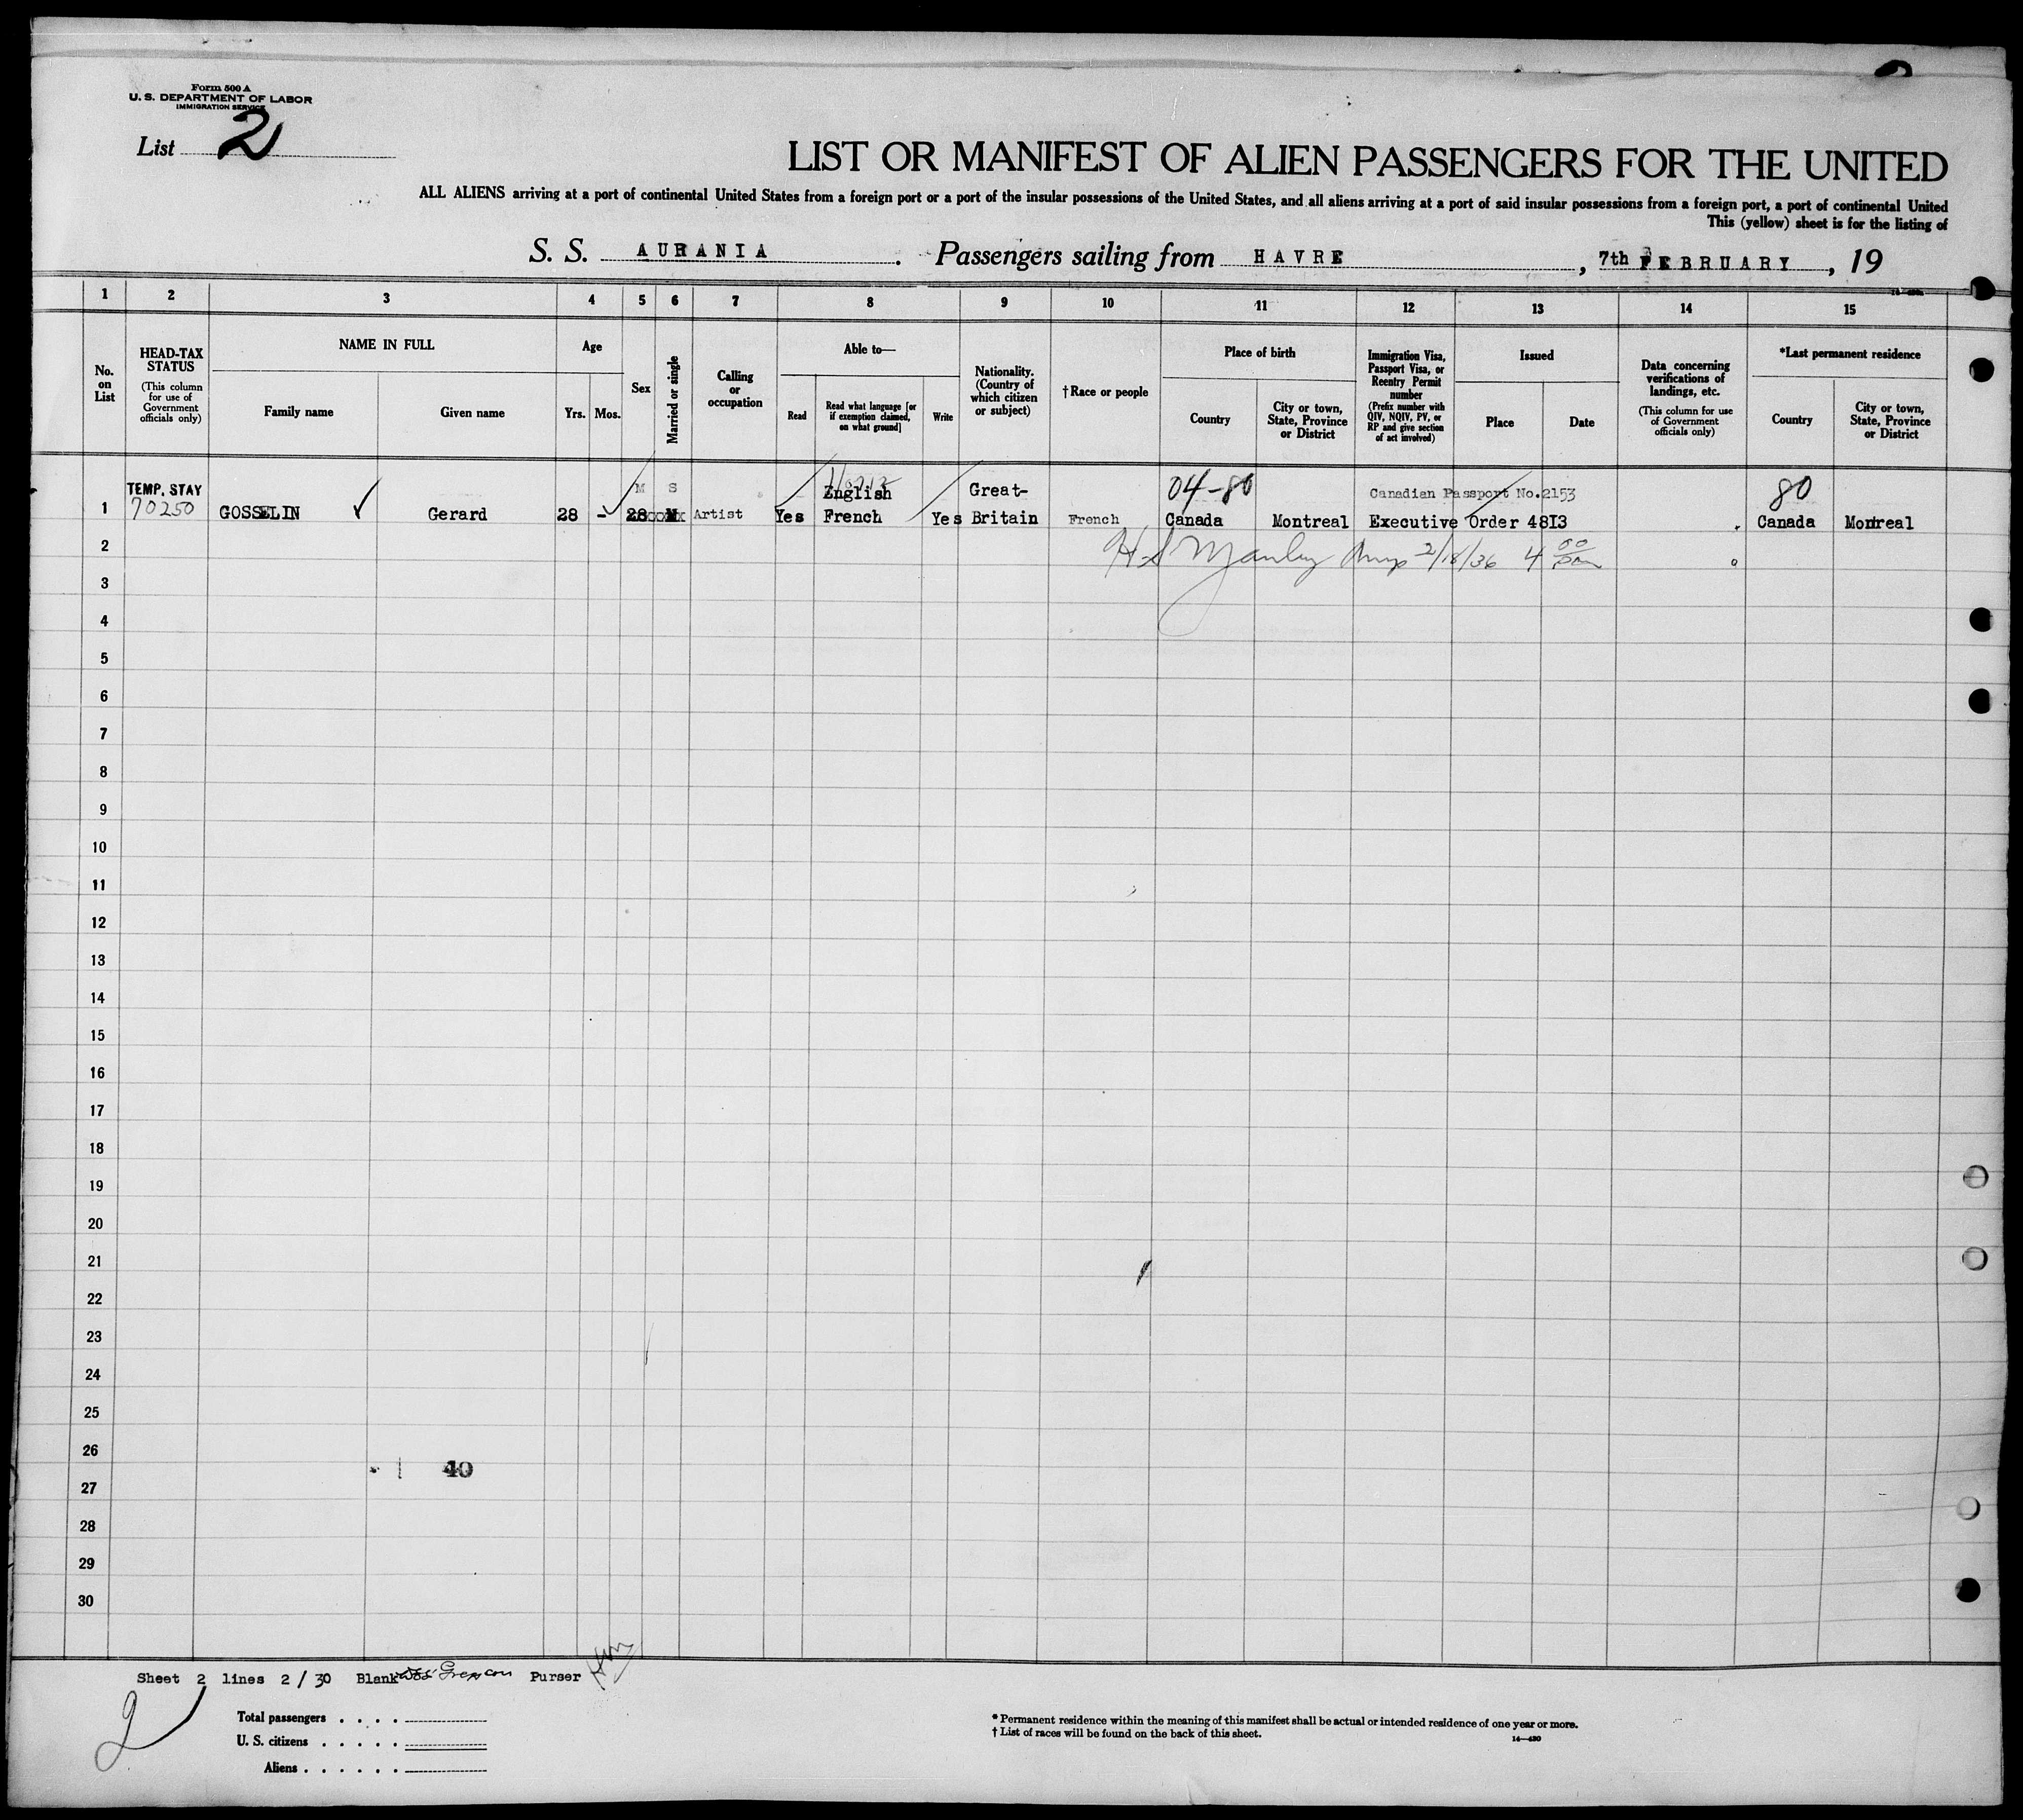 Form 500 A
U. S. DEPARTMENT OF LABOR
IMMIGRATION SERVICE
List 2
LIST OR MANIFEST OF ALIEN PASSENGERS FOR THE UNITED
ALL ALIENS arriving at a port of continental United States from a foreign port or a port of the insular possessions of the United States, and all aliens arriving at a port of said insular possessions from a foreign port, a port of continental United
This (yellow) sheet is for the listing of
S. S. AURANIA . Passengers sailing from HAVRE , 7th FEBRUARY , 19
1 2 3 4 5 6 7 8 9 10 11 12 13 14 15
No. on List
HEAD-TAX STATUS
(This column for use of Government officials only)
NAME IN FULL
Family name
Given name
Age
Yrs.
Mos.
Sex
Married or single
Calling or occupation
Able to—
Read
Read what language [or if exemption claimed, on what ground]
Write
Nationality. (Country of which citizen or subject)
† Race or people
Place of birth
Country
City or town, State, Province or District
Immigration Visa, Passport Visa, or Reentry Permit number
(Prefix number with QIV, NQIV, PV, or RP and give section of act involved)
Issued
Place
Date
Data concerning verifications of landings, etc.
(This column for use of Government officials only)
*Last permanent residence
Country
City or town, State, Province or District
TEMP. STAY M S English Great- 04-80 Canadian Passport No.2153 80
1 70250 GOSSELIN ✓ Gerard 28 - Artist Yes French Yes Britain French Canada Montreal Executive Order 48I3 Canada Montreal
2 2/18/36 4 00 pm
3
4
5
6
7
8
9
10
11
12
13
14
15
16
17
18
19
20
21
22
23
24
25
26
40
27
28
29
30
Sheet 2 lines 2/30 Blank Purser
2
Total passengers . . . .
U. S. citizens . . . . .
Aliens . . . . . .
* Permanent residence within the meaning of this manifest shall be actual or intended residence of one year or more.
† List of races will be found on the back of this sheet.
14—430